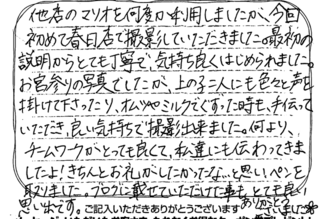 他店のマリオを何度か利用しましたが、今回
初めて春日店で撮影していただきました。最初の
説明からとても丁寧で、気持ち良くはじめられました。
お宮参りの写真でしたが、上の子二人にも色々と声を
掛けて下さったり、オムツやミルクでぐずった時も、手伝って
いただき、良い気持ちで撮影出来ました。何より、
チームワークがとっても良くて、私達にも伝わってきま
したよ!きちんとお礼がしたかったな、と思いペンを
取りました。ブログに載せていただけた事も、とても良い
思い出です。ありがとうございました。
ご記入いただきありがとうございます